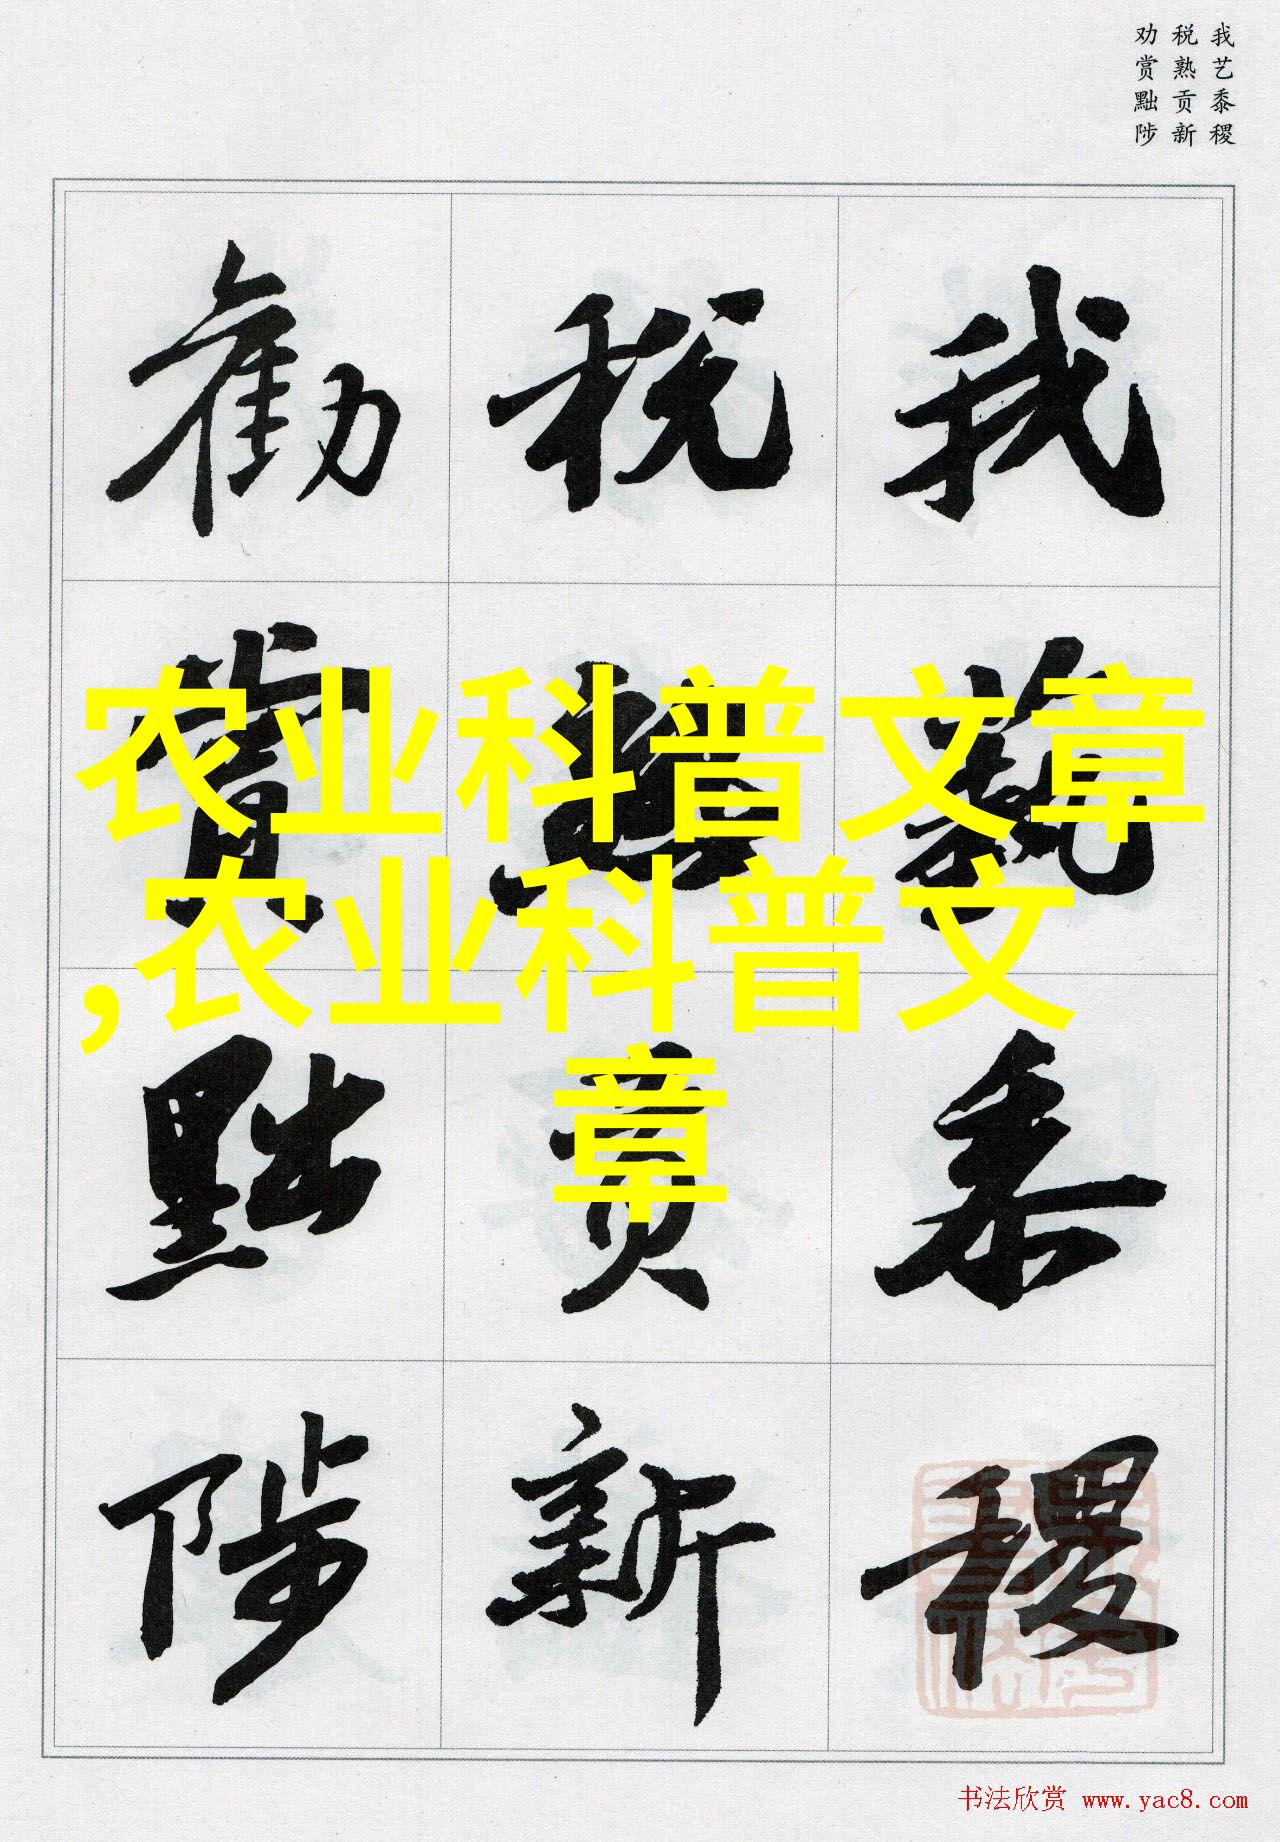 我艺黍稷
税熟贡新
劝赏黜陟
我藝黍稷
税熟貢新
勸賞黜陟
农业科普文章
,农业科普文
章
书法欣赏 www.yac8.com